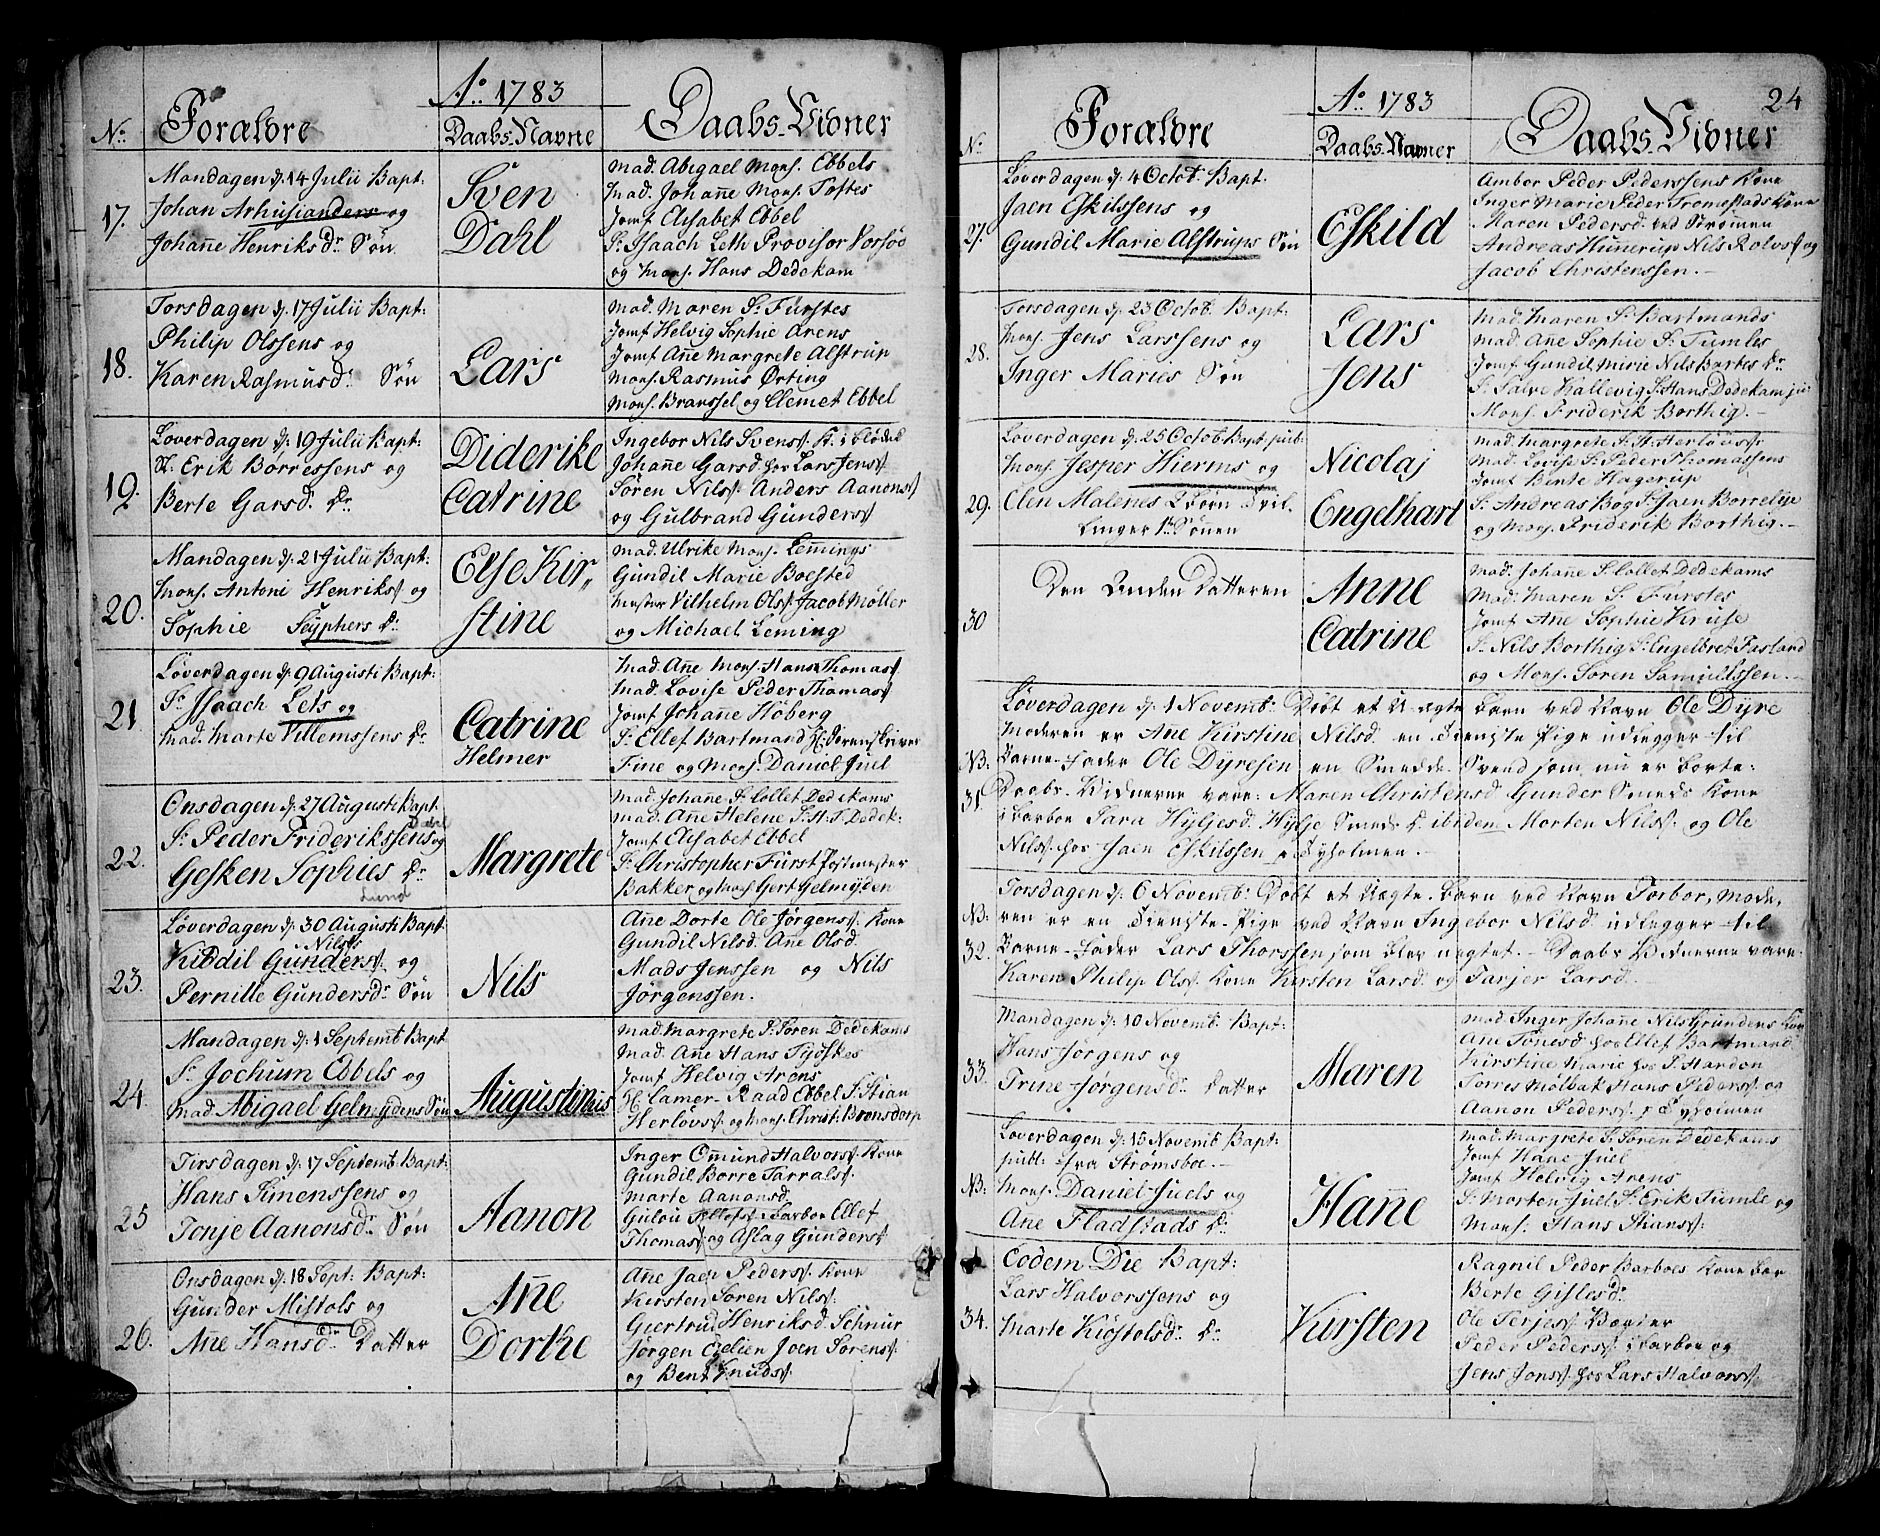 Ao. 1783
No. Forældre Daabs-Navne Daabs-Vidner
17.
Mandagen d. 14 Julii Bapt:
Johan Arhusianders og
Johañe Henriksdr. Søn
Sven
Dahl
Mad. Abigael Mons. Ebbels
Mad. Johañe Mons. Toftes
Jomf Elisabet Ebbel
Sr. Isaach Leth Provisor Vorsøe
og Mons. Hans Dedekam
18.
Torsdagen d. 17 Julii Bapt:
Philip Olssens og
Karen Rasmusdr. Søn
Lars
Mad. Maren Sr. Fürstes
Jomf Helvig Sophie Arens
Jomf Añe Margrete Alstrup
Mons. Rasmus Ørting
Mons. Branssel og Clemet Ebbel
19.
Løverdagen d. 19 Julii Bapt:
Sl. Erik Børressens og
Berte Garsd. Dr.
Diderike
Catrine
Ingebor Nils Svens. K. i Flødel
Johañe Garsd. hos Lars Jens.
Søren Nils. Anders Aanons.
og Gulbrand Gunders.
20.
Mandagen d. 21 Julii Bapt:
Mons. Antoni Henriks. og
Sophie Seyphers Dr.
Else Kir„
stine
Mad. Ulrike Mons. Lemings
Gundil Marie Boested
Mester Vilhelm Ols. Jacob Møller
og Michael Leming
21
Løverdagen d. 9 Augusti Bapt:
Sr. Isaach Lets og
Mad. Marte Villemssens Dr.
Catrine
Helmer
Mad. Añe Mons. Hans Thomas.
Mad. Lovise Peder Thomas.
Jomf Johañe Høberg
Sr. Ellef Bartmand Hr. Sorenskriver
Fine og Mons. Daniel Juel
22.
Onsdagen d. 27 Augusti Bapt.
Sr. Peder Friderikssens og
Gesken Sophies Dr.
Lund
Margrete
Mad. Johañe Sr. Collet Dedekams
Mad. Añe Helene Sr. H. T. Dedek:
Jomf Elisabet Ebbel
Sr. Christopher Fürst Postmester
Bakker og Mons Gert Gelmyden
23.
Løverdagen d. 30 Augusti Bapt
Nils.
Kiddil Gunders. og
Pernille Gundersdr. Søn
Nils
Añe Dorte Ole Jørgens. Kone
Gundil Nilsd. Añe Olsd.
Mads Jenssen og Nils
Jørgenssen.
24.
Mandagen d. 1 Septemb Bapt
Sr. Jochum Ebbels og
Mad. Abigael Gelmydens Søn
Augustinus
Mad. Margrete Sr. Søren Dedekams
Mad. Añe Hans Tydskes
Jomf Helvig Arens
Hr. Camer-Raad Ebbel Sr. Stian
Herløvs. og Mons. Christ: Bronsdorp
25
Tirsdagen d. 17 Septemb. Bapt:
Hans Simenssens og
Tonje Aanonsdr. Søn
Aanon
Inger Omund Halvors. Kone
Gundil Borre Tarrals.
Marte Aanonsd.
Gulou i Barboe Ellef
Thomas. og Aslag Gunders.
26.
Onsdagen d. 18 Sept: Bapt:
Gunder Mistols og
Añe Hansdr. Datter
Añe
Dorthe
Añe Jaen Peders. Kone
Kirsten Søren Nils.
Giertrud Henriksd. Schnur
Jørgen Joen Sørens.
og Bent Knuds.
24
Ao. 1783
No. Forældre Daabs-Navner Daabs-Vidner
27.
Løverdagen d. 4 Octob. Bapt.
Jaen Eskilssens og
Gundil Marie Alstrups Søn
Eskild
Ambor Peder Pederssens Kone
Inger Marie Peder Tromstads Kone
Maren Pedersd. ved Strømmen
Andreas Hunnerup Nils Rolvs. og
Jacob Christenssen.
28.
Torsdagen d. 23 Octob. Bapt:
Mons. Jens Larssens og
Inger Maries Søn
Lars
Jens
Mad. Maren Sr. Bartmands
Mad. Ane Sophie Sr. Tumles
Jomf Gundil Mirie Nils Bartes Dr.
Sr. Salve Kallevig Sr. Hans Dedekam jun
Mons. Friderik Borthig.
29.
Løverdagen d. 25 Octob. Bapt. publ:
Mons. Jesper Hierms og
Elen Malenes 2 Børn Tvil„
linger 1te. Sønnen
Nicolaj
Engelhart
Mad. Margrete Sr. St. Herløvs.
Mad. Lovise Sr. Peder Thomassens
Jomf Bente Hagerup
Sr. Andreas Bogt Jaen Borrelye
og Mons. Friderik Borthig.
30
Den Anden Datteren
Anne
Catrine
Mad. Johañe Sr. Collet Dedekams
Mad. Maren Sr. Fürstes
Jomf Ane Sophie Kruse
Sr. Nils Borthig Sr. Engelbret Fasland
og Mons. Søren Samuelssen.
NB:
31.
Løverdagen d. 1 Novemb: Døbt et U-ægte Barn ved Navn Ole Dyre
Moderen er Añe Kirstine Nilsd. en Tieneste Pige udlegger til
Barne-Fader Ole Dyresen en Smedde-Svend som nu er borte:
Daabs-Vidnerne vare: Maren Christensd. Gunder Smeds Kone
i Barboe Sara Hyljesd. Hylje Smeds Dr. ibidem Morten Nils. og Ole
Nils. hos Jaen Eskilssen p Tyholmen.
NB:
32.
Torsdagen d. 6 Novemb: Døbt et Uægte Barn ved Navn Torbor, Mode„
ren er en Tieneste-Pige ved Navn Ingebor Nilsd. udlegger til
Barne-Fader Lars Thorssen som blev negtet. Daabs Vidnerne vare
Karen Philip Ols. Kone Kirsten Larsd. og Tarjer Larsd.
33.
Mandagen d. 10 Novemb. Bapt:
Hans Jørgens og
Trine Jørgensdr. Datter
Maren
Mad. Inger Johañe Nils Grundens Kon
Ane Tønesd. hos Ellef Bartmand
Kirstine Marie hos Sr. Hardon
Torres Molbak Hans Peders. og
Aanon Peders. p Tyholmen
NB:
Løverdagen d. 15 Novemb. Bapt:
publ: fra Strømsboe.
Mons. Daniel Juels og
Ane Fladstads Dr.
Hañe
Mad. Margrete Sr. Søren Dedekams
Jomf Hane Juel
Jomf Helvig Arens
Sr. Morten Juel Sr. Erik Tumle og
Mons. Hans Stians.
34.
Eodem Die Bapt:
Lars Halvorssens og
Marte Kiøstolsdr. Dr.
Kirsten
Ragnil Peder Barboes Kone
Berte Gislesd.
Ole Terjes.
Peder Peders. i Barboe og
Jens Jons. hos Lars Halvors.